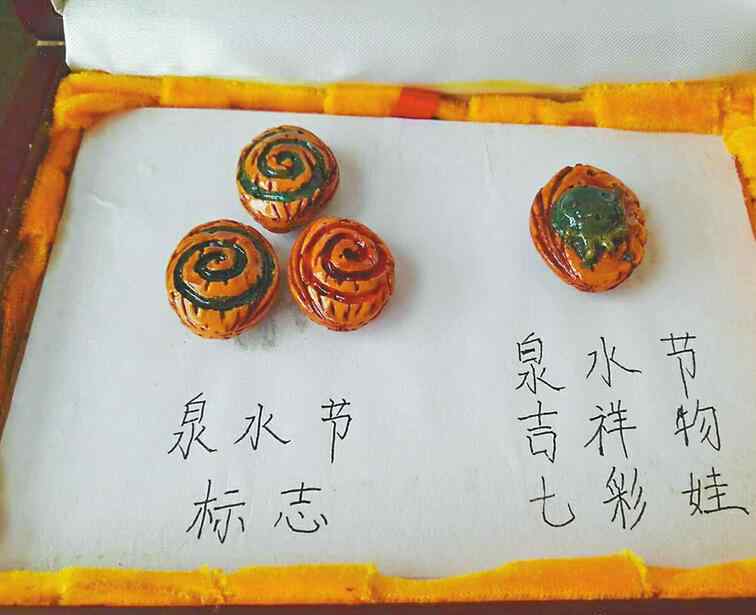 泉水节
标志
泉水节
吉祥物
七彩娃